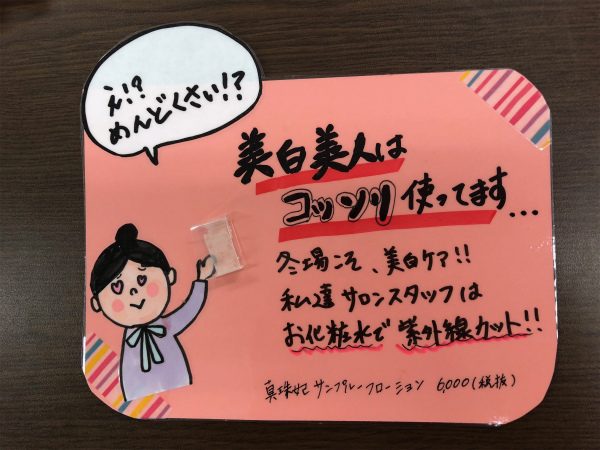 え!?
めんどくさい!?
美白美人は
コッソリ使ってます...
冬場こそ、美白ケア!!
私達サロンスタッフは
お化粧水で紫外線カット!!
真珠妃サンプレーフローション 6,000(税抜)